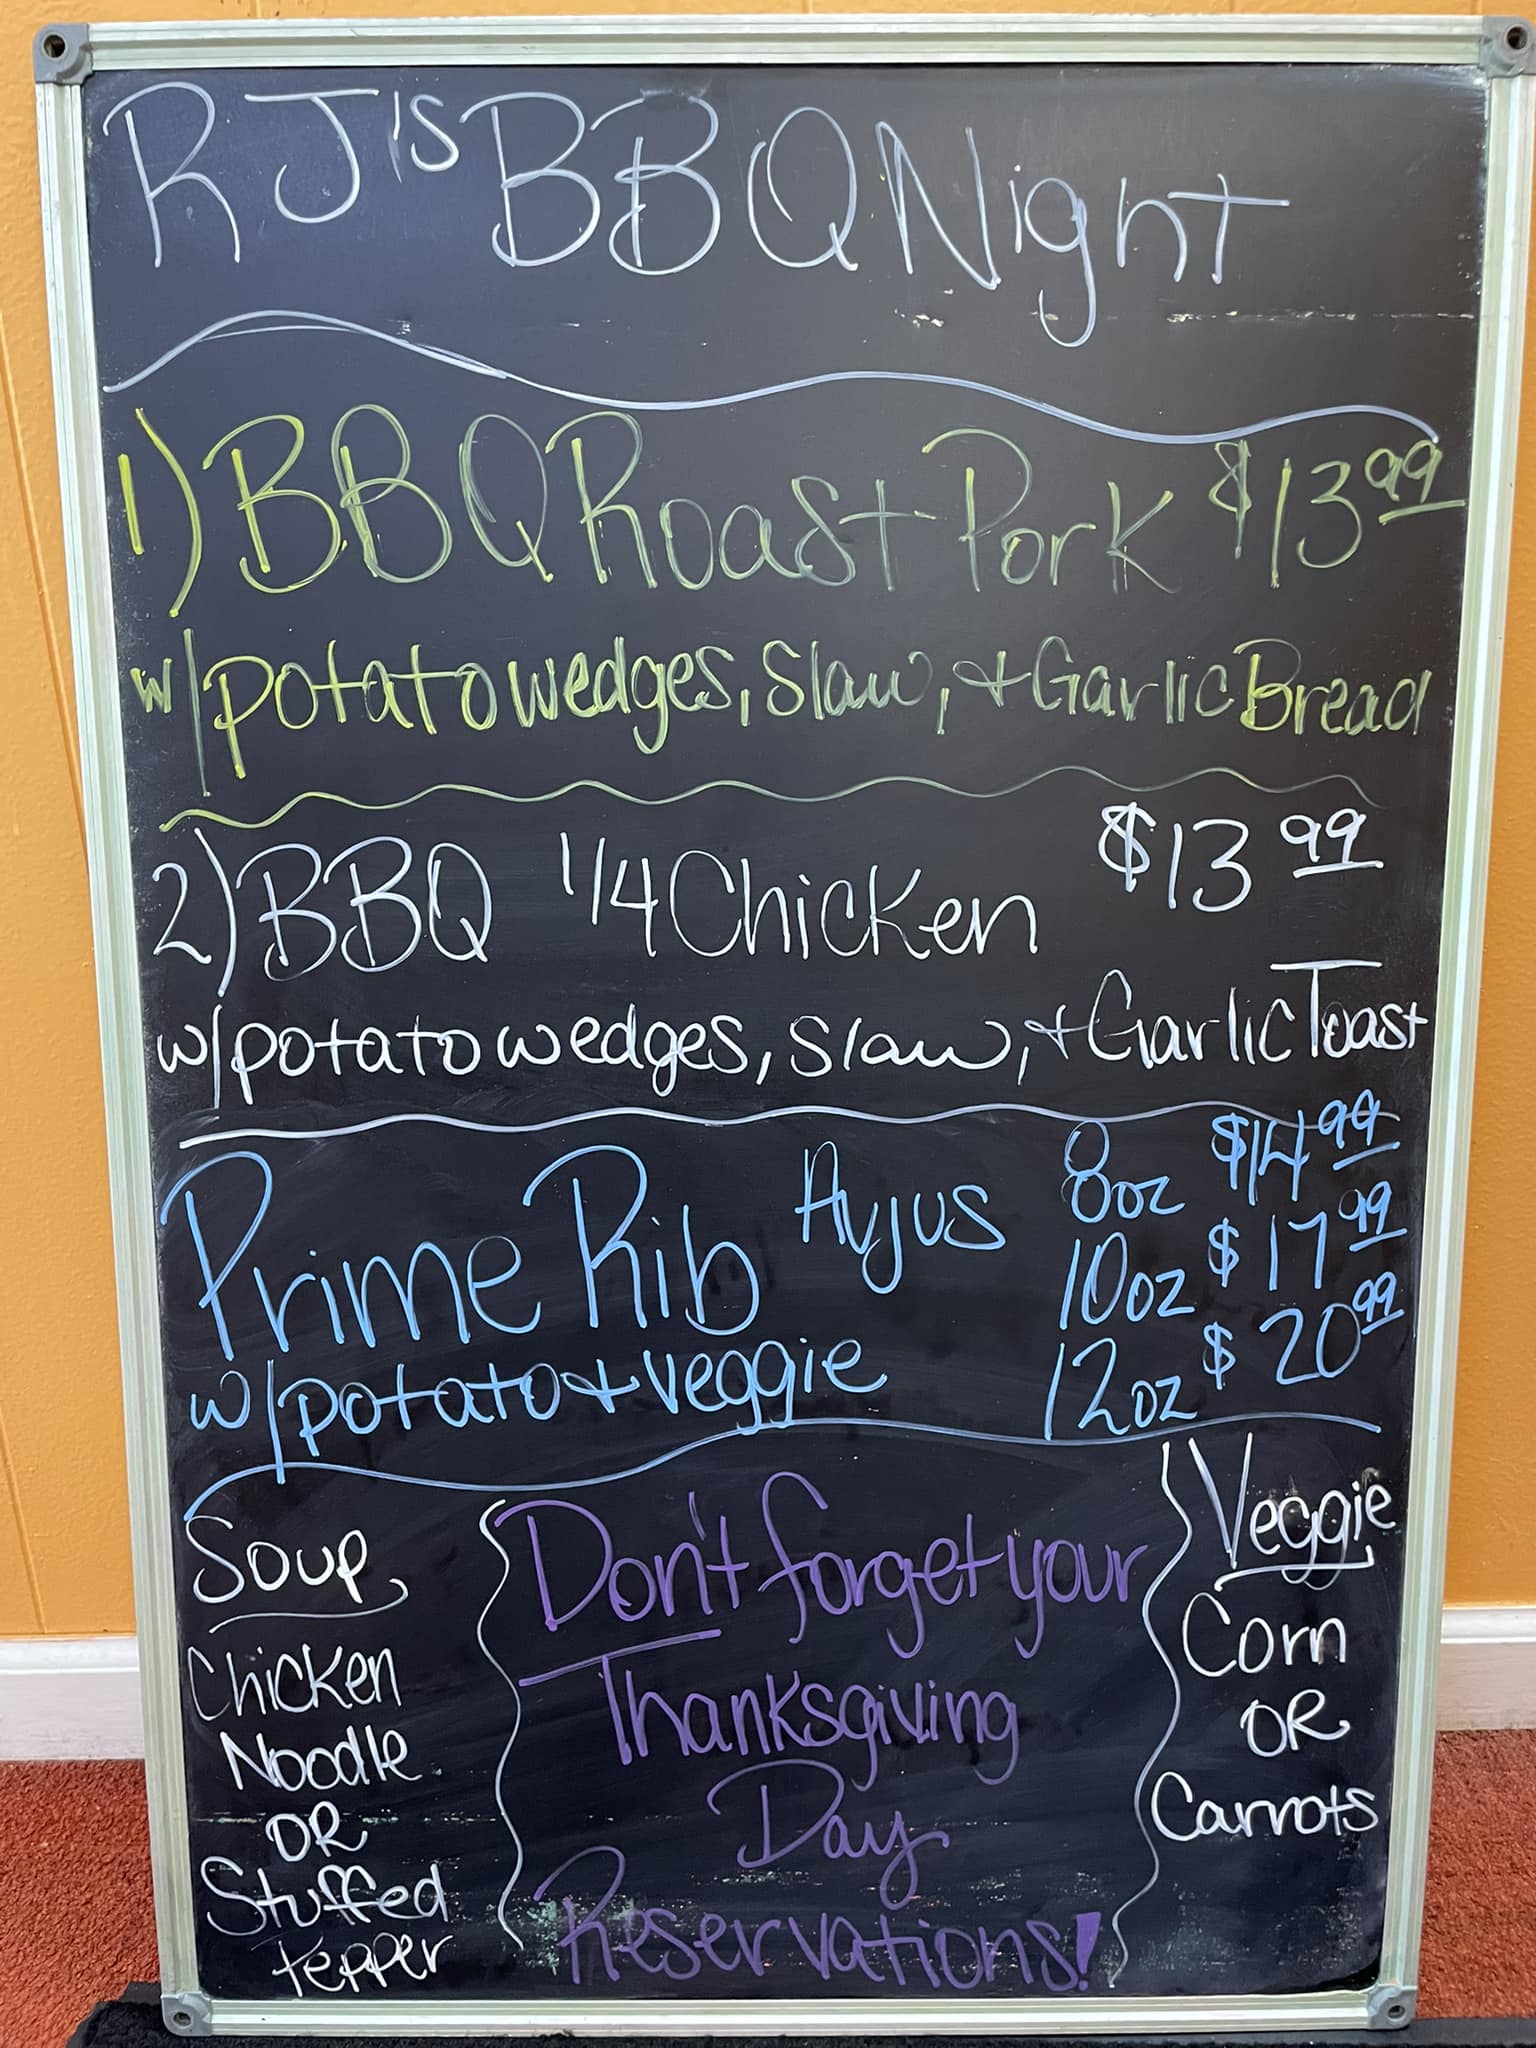 RJ's BBQ Night
1) BBQ Roast Pork $13.99
w/ potato wedges, slaw, + Garlic Bread
2) BBQ 1/4 Chicken $13.99
w/ potato wedges, slaw, + Garlic Toast
Prime Rib Aujus
w/ potato + veggie
8oz $14.99
10oz $17.99
12oz $20.99
Soup
Chicken
Noodle
OR
Stuffed
Pepper
Don't forget your
Thanksgiving
Day
Reservations!
Veggie
Corn
OR
Carrots